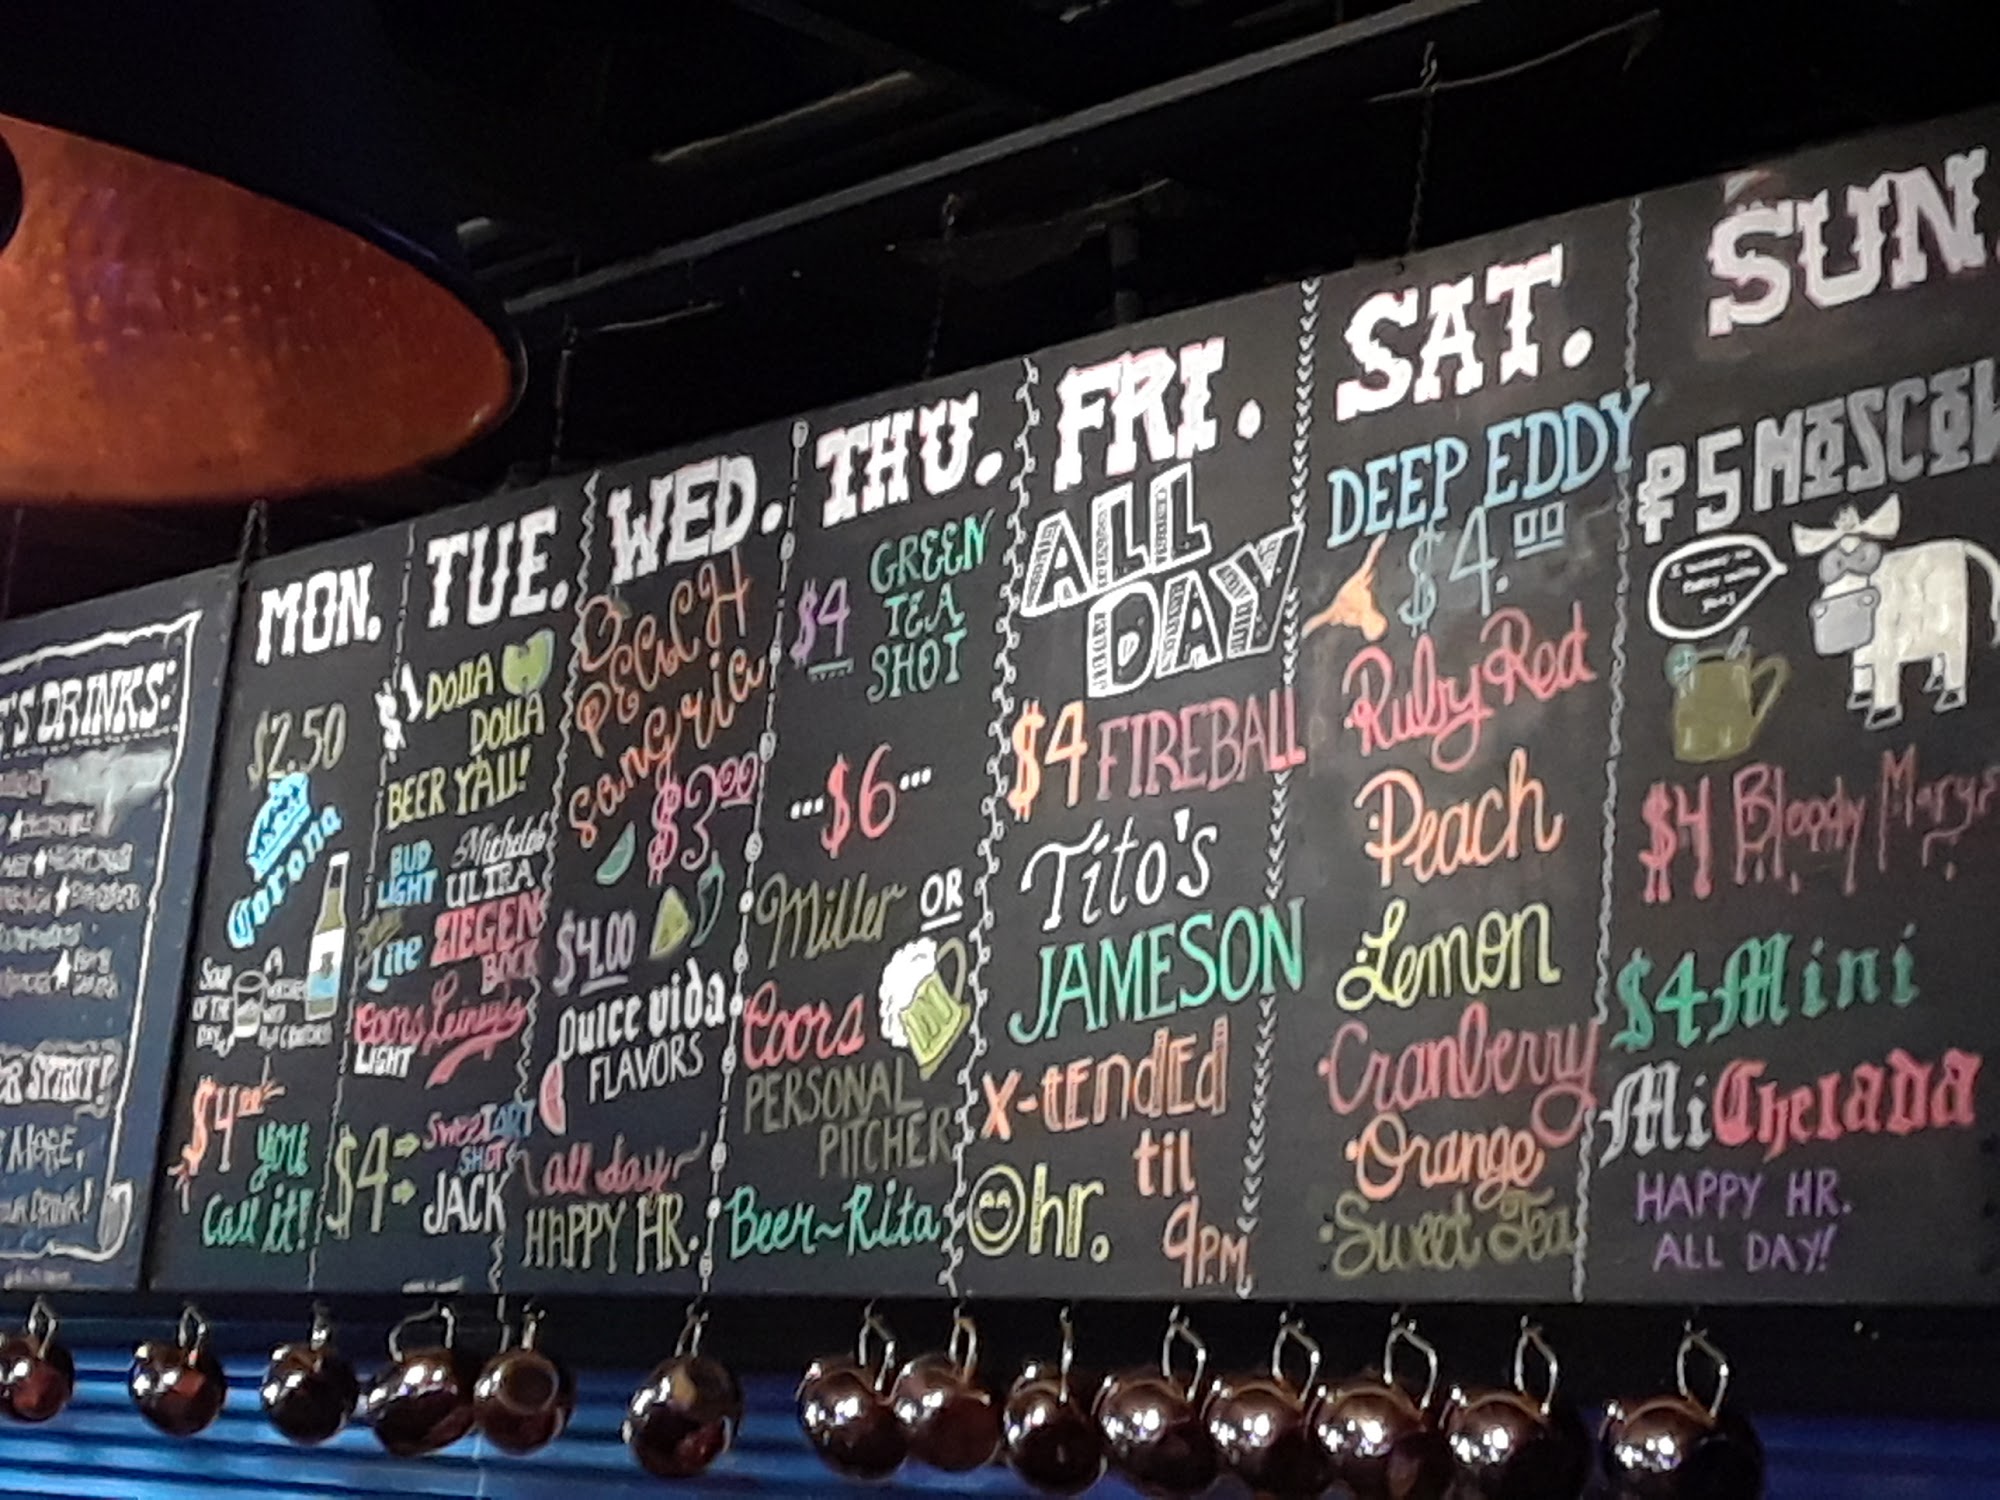 'S DRINKS:
SPIRIT!
MORE,
DRINK!
MON.
$2.50
Corona
OF THE
DAY
$4
you
Call it!
TUE.
$1 DOLLA
DOLLA
BEER Y'ALL!
BUD
LIGHT
Michelob
ULTRA
Lite
ZIEGEN
BOCK
Coors
LIGHT
Leiny's
$4
SWEETART
SHOT
JACK
WED.
PEACH
Sangria
$3.00
$4.00
Dulce Vida
FLAVORS
all day
HAPPY HR.
THU.
$4
GREEN
TEA
SHOT
...$6...
Miller OR
Coors
PERSONAL
PITCHER
Beer~Rita
FRI.
ALL
DAY
$4 FIREBALL
Tito's
JAMESON
X-tENdEd
til
hr.
9PM
SAT.
DEEP EDDY
$4.00
Ruby Red
Peach
Lemon
Cranberry
Orange
Sweet Tea
SUN.
$5 MOSCOW
$4 Bloody Marys
$4 Mini
MiChelada
HAPPY HR.
ALL DAY!